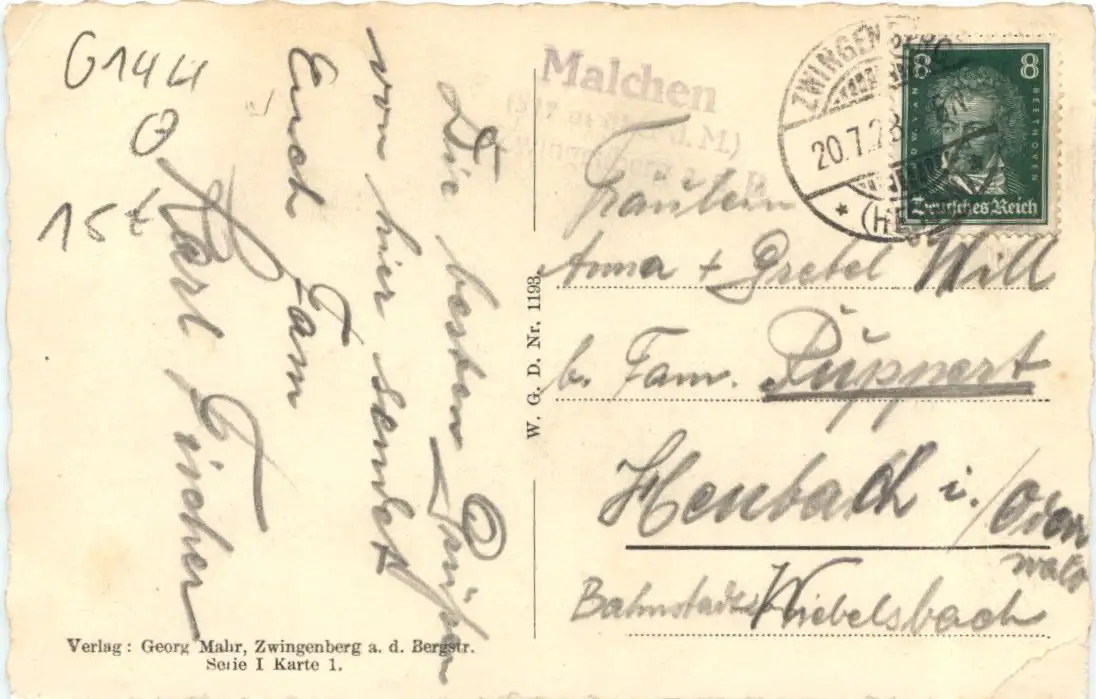 G144
15
Die besten Grüße
von hier sendet
Euch Fam
Karl Fischer
Verlag: Georg Mahr, Zwingenberg a. d. Bergstr.
Serie I Karte 1.
W. G. D. Nr. 1193.
Malchen
ZWINGENBERG
20.7.28
(HESSEN)
8 8
LUDW. VAN BEETHOVEN
Deutsches Reich
Fräulein
Anna + Gretel Will
b. Fam. Puppert
Heubach i./Oden
wald
Wiebelsbach